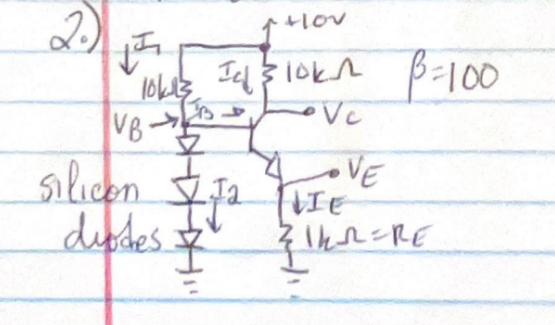 2.)
+10V
I1
10kΩ
IC
10kΩ
β=100
IB
VB
VC
silicon
diodes
I2
VE
IE
1kΩ=RE